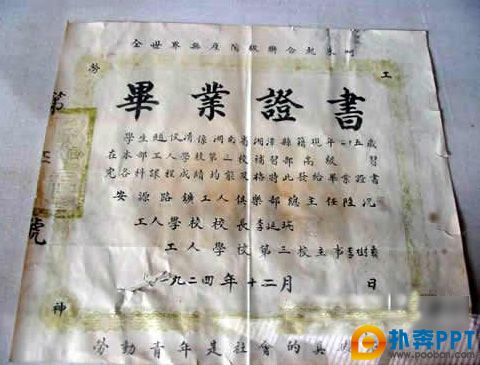 全世界無產階級聯合起來呵
勞 工
畢業證書
學生趙漢清係湖南省湘潭縣籍現年 十五歲
在本部工人學校第 校補習部高級 習
完各科課程成績均能及格特此發給畢業證書
安源路鑛工人俱樂部總主任陸沉
工人學校校長李延瑞
工人學校第三校主事李樹
一九二四年十二月 日
第 號
神
勞動青年是社會的真
扑奔PPT
www.poobon.com